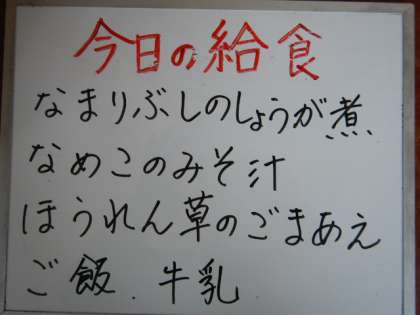 今日の給食
なまりぶしのしょうが煮
なめこのみそ汁
ほうれん草のごまあえ
ご飯.牛乳